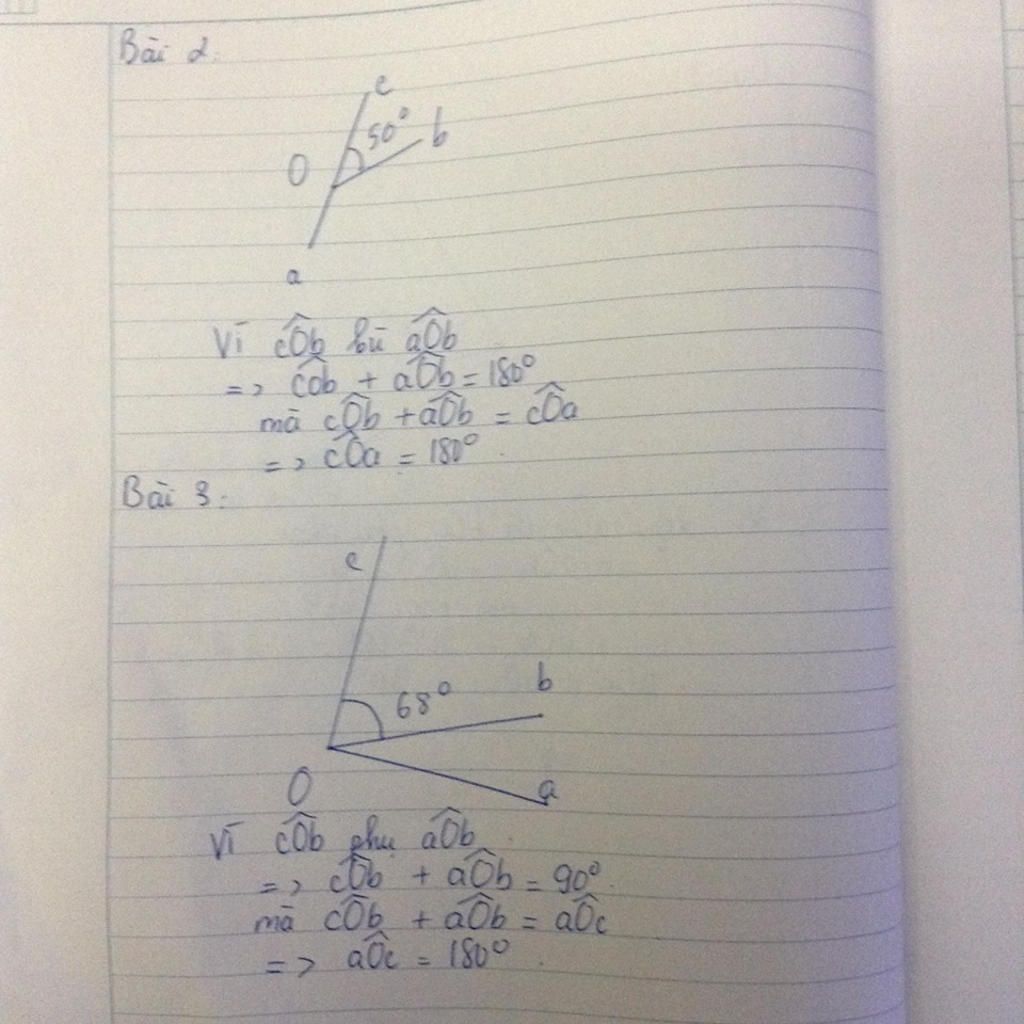 Bài 2:
c
50°
b
O
a
Vì cÔb bù aÔb
=> cÔb + aÔb = 180°
mà cÔb + aÔb = cÔa
=> cÔa = 180°.
Bài 3:
c
68°
b
O
a
Vì cÔb phụ aÔb.
=> cÔb + aÔb = 90°.
mà cÔb + aÔb = aÔc
=> aÔc = 180°.